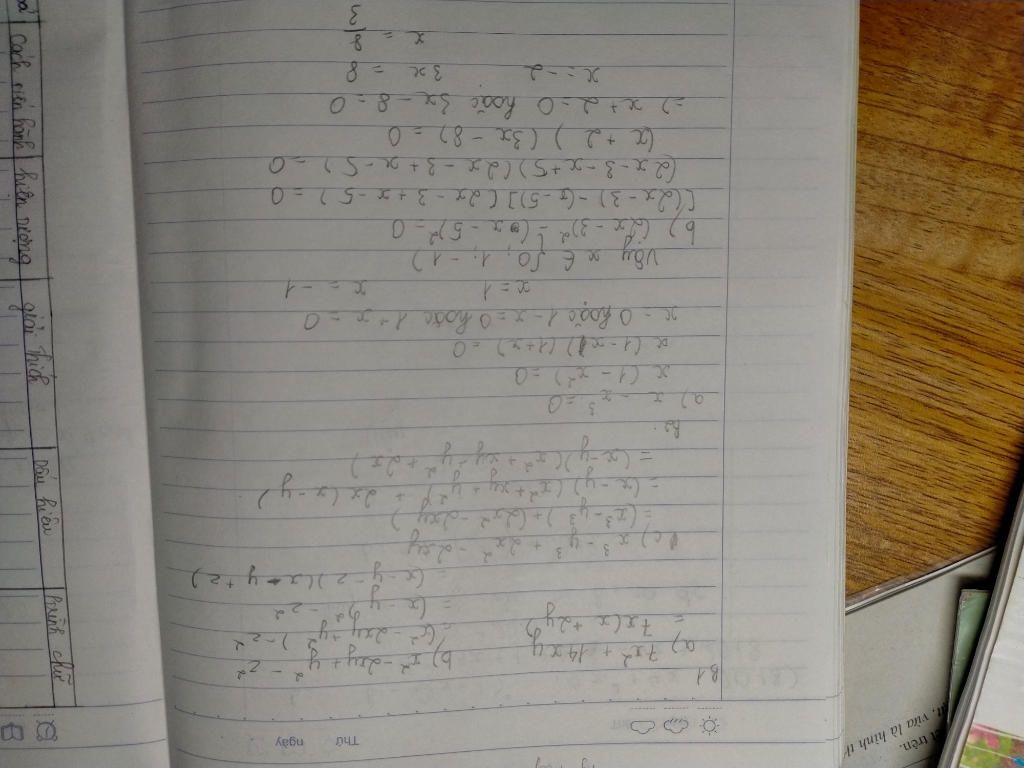 Thứ
ngày
B.1
a) 7x² + 14xy
= 7x(x + 2y)
b) x² - 2xy + y² - z²
= (x² - 2xy + y²) - z²
= (x - y)² - z²
= (x - y - z)(x - y + z)
c) x³ - y³ + 2x² - 2xy
= (x³ - y³) + (2x² - 2xy)
= (x - y)(x² + xy + y²) + 2x(x - y)
= (x - y)(x² + xy + y² + 2x)
B2.
a) x - x³ = 0
x(1 - x²) = 0
x(1 - x)(1 + x) = 0
x = 0 hoặc 1 - x = 0 hoặc 1 + x = 0
x = 1 x = -1
Vậy x ∈ {0; 1; -1}
b) (2x - 3)² - (x - 5)² = 0
[(2x - 3) - (x - 5)](2x - 3 + x - 5) = 0
(2x - 3 - x + 5)(2x - 3 + x - 5) = 0
(x + 2)(3x - 8) = 0
=> x + 2 = 0 hoặc 3x - 8 = 0
x = -2 3x = 8
x = 8/3
Cách tiến hành
hiện tượng
giải thích
Dấu hiệu
vừa là hình
t trên.